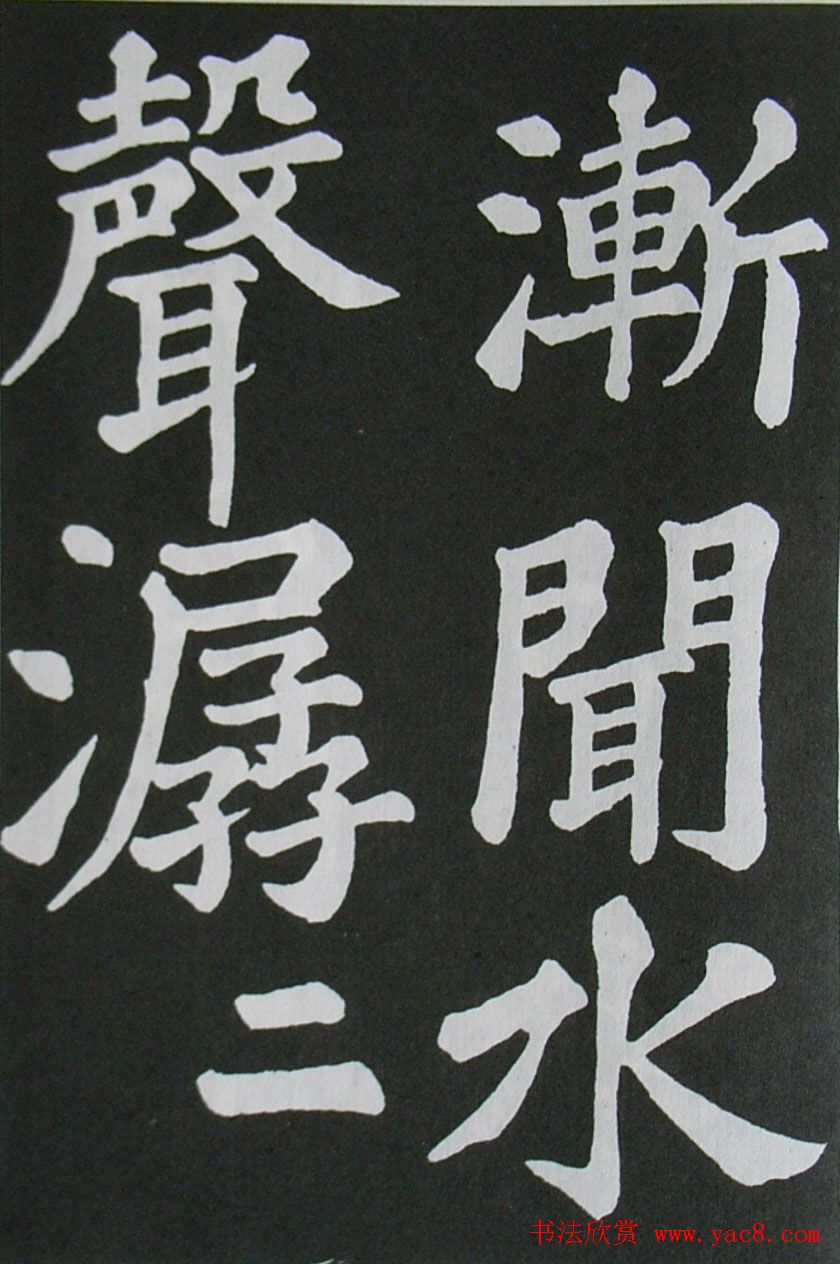 漸聞水
聲潺二
书法欣赏 www.yac8.com